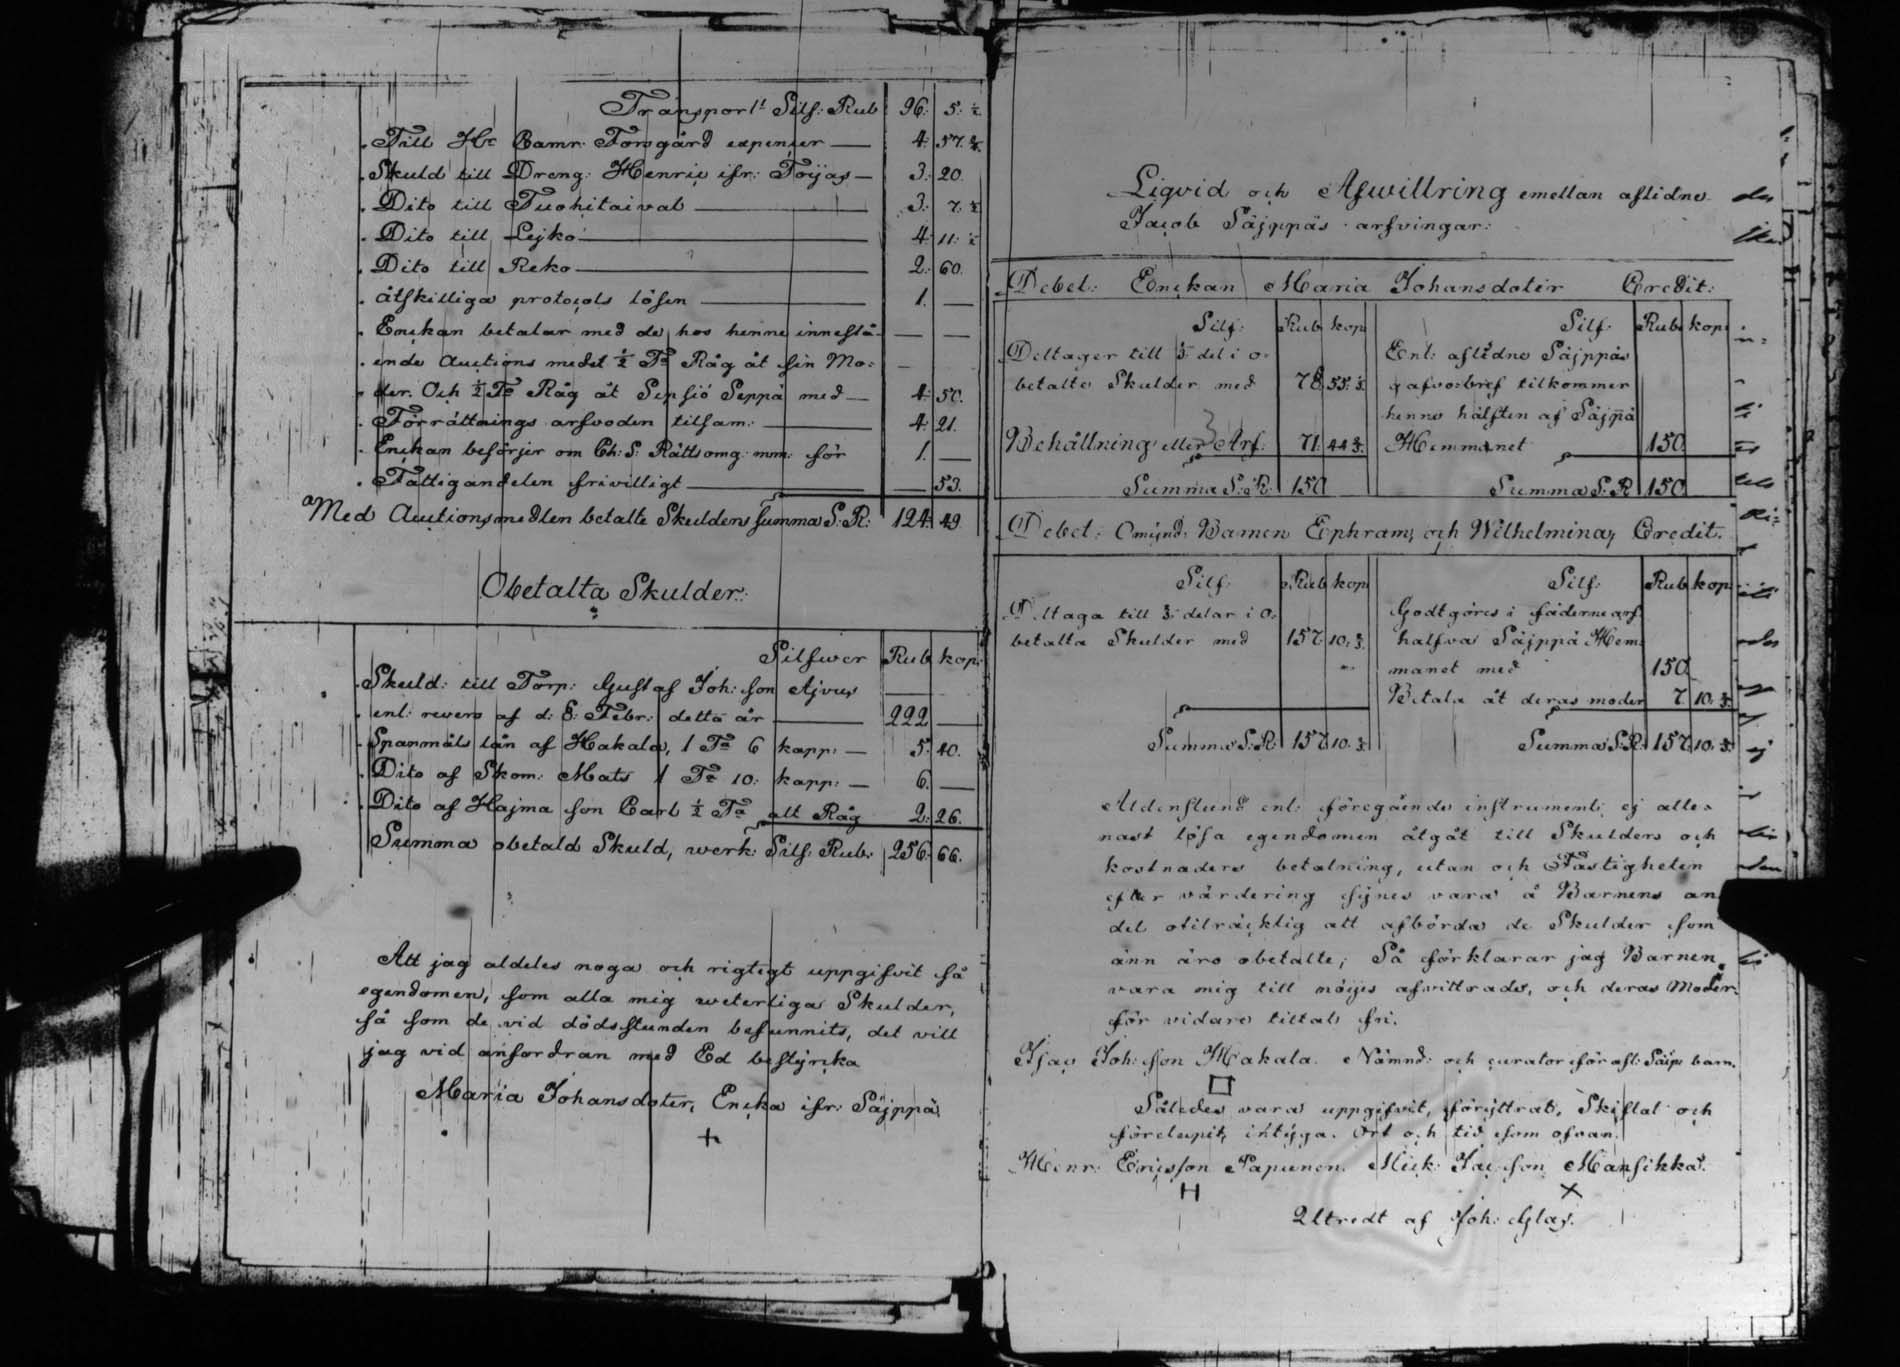 Transport Silf: Rub 96: 5: ½
Till Hr Camr: Forsgård expenser — 4: 57.
Skuld till Dreng: Henric ifr: Töijas — 3: 20.
Dito till Tuohitaival — 3: 7. ½
Dito till Lejko — 4: 11: ½
Dito till Reko — 2: 60.
åtskilliga protocols lösen — 1. —
Enckan betalar med de hos henne innestå- — —
ende Auctions medel ½ Ta Råg åt sin Mo= — —
der. Och ½ Ta Råg åt Seppä med — 4: 50.
Förrättnings arfvoden tilsam: — 4: 21.
Enckan besörjer om Ch: S: Rättsomg: mm: för 1. —
Fattigandelen frivilligt — 53.
Med Auctionsmedlen betalte Skuldens summa S: R: 124: 49.
Obetalta Skulder:
Silfwer Rub kop:
Skuld: till Torp: Gustaf Joh: son Ajvus
enl: revers af d: 8: Febr: detta år — 222 —
Spanmåls lån af Hakala, 1 Ta 6 kapp: — 5: 40.
Dito af Skom: Mats 1 Ta 10: kapp: — 6. —
Dito af Hajma son Carl ½ Ta alt Råg 2: 26.
Summa obetald Skuld, werk: Silf: Rub: 256: 66.
Att jag aldeles noga och rigtigt uppgifvit så
egendomen, som alla mig weterliga Skulder,
så som de vid dödsstunden befunnits, det vill
jag vid anfordran med Ed bestyrcka
Maria Johansdoter, Encka ifr: Säjppä
+
Liqvid och Afwillring emellan aflidne
Jacob Säjppäs arfvingar:
Debet: Enckan Maria Johansdoter Credit:
Silf: Rub kop Silf: Rub kop
Deltager till del i o= Enl: aflidne Säjppäs
betalte Skulder med 78 55. gåfvo=bref tilkommer
henne hälften af Säjppä
Behållning eller Arf: 71 44 Hemmanet 150
Summa S: R: 150 Summa S: R 150
Debet: Omynd: Barnen Ephraim, och Wilhelmina, Credit.
Silf: Rub kop Silf: Rub kop
Deltaga till delar i o= Godtgöres i fäderne arf
betalta Skulder med 157 10. halfva Säjppä Hem=
manet med 150
Betala åt deras moder 7. 10.
Summa S: R: 157 10. Summa S: R: 157 10.
Aldenstund enl: föregående instrument ej alle=
nast lösa egendomen åtgåt till Skulders och
kostnaders betalning, utan och Fastigheten
efter värdering synes vara å Barnens an
del otilräcklig att afbörda de Skulder som
änn äro obetalte; Så förklarar jag Barnen
vara mig till nöijes afvittrade, och deras Moder
för vidare tiltal fri.
Isac Joh: son Hakala. Nämnd: och curator för afl: Säjp: barn.
Således vara uppgifvit, förÿttrat, Skiftat och
förelupit, intyga. Ort och tid som ofvan.
Henr: Ericsson Papunen. Mick: Jac: son Mansikka.
H X
Utredt af Joh: Glas.